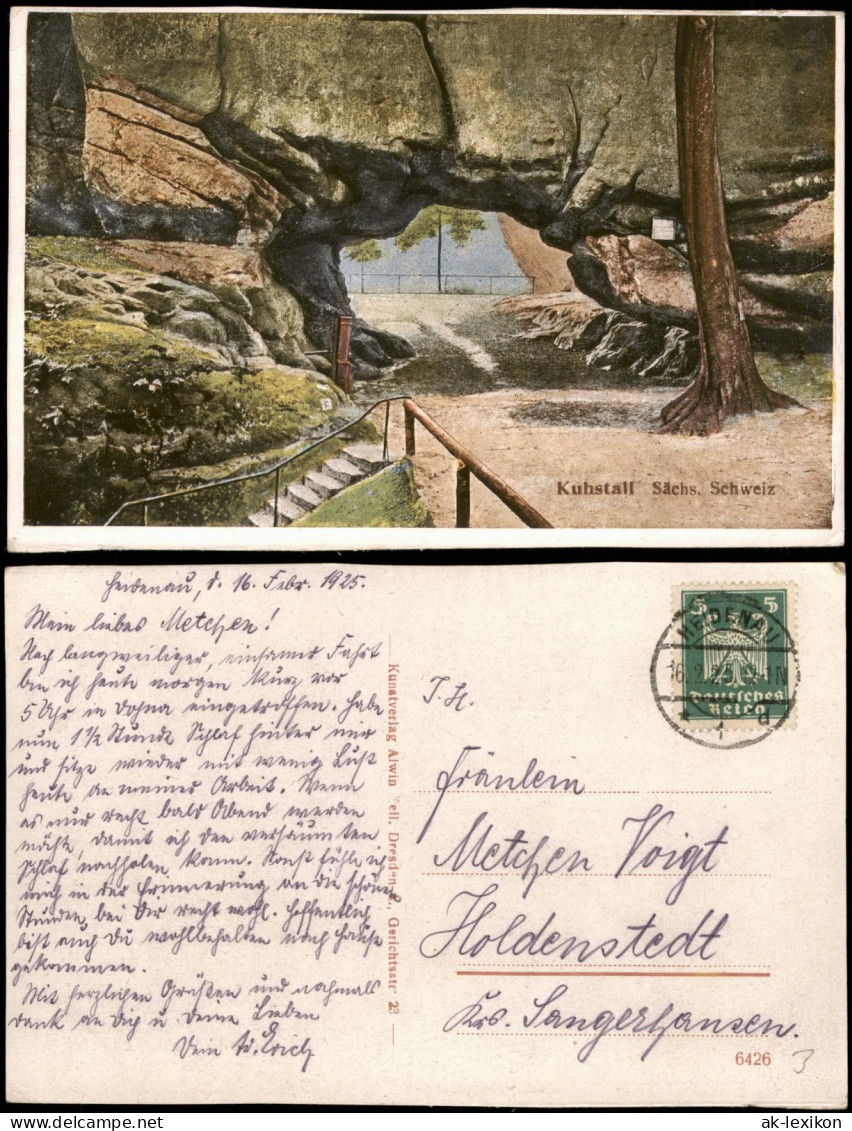 Kuhstall Sächs. Schweiz
Heidenau, d. 16. Febr. 1925.
Mein liebes Metchen!
Nach langweiliger, einsamer Fahrt
bin ich heute morgen kurz vor
5 Uhr in Dohna eingetroffen. Habe
nun 1½ Stunde Schlaf hinter mir
und sitze wieder mit wenig Lust
heute an meiner Arbeit. Wenn
es nur recht bald Abend werden
möchte, damit ich den versäumten
Schlaf nachholen kann. Sonst fühle ich
mich in der Erinnerung an die schönen
Stunden bei Dir recht wohl. Hoffentlich
bist auch Du wohlbehalten nach Hause
gekommen.
Mit herzlichen Grüßen und nochmals
Dank an Dich u. Deine Lieben
Dein Erich
Kunstverlag Alwin Keil, Dresden-A., Gerichtsstr 23
5 5
HEIDENAU
16.2.25
Deutsches
Reich
1 d
Fräulein
Metchen Voigt
Holdenstedt
Krs. Sangerhausen.
6426
3
ak-lexikon